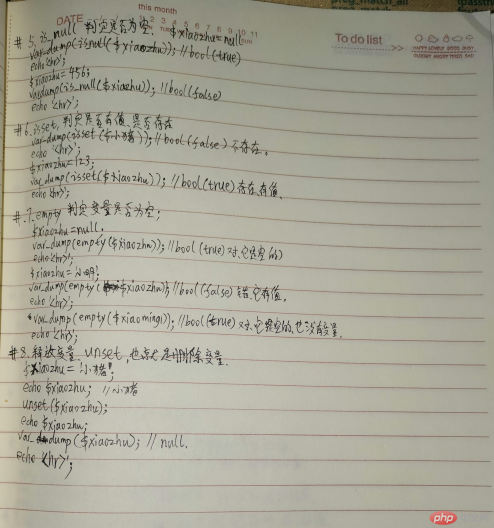 this month
DATE
1 2 3 4 5 6 7 8 9 10 11
To do list
HAPPY LOVELY GOOD BUSY
#5. is_null 判定是否为空. $xiaozhu=null;
var_dump(is_null($xiaozhu)); //bool(true)
echo'<hr>';
$xiaozhu=456;
var_dump(is_null($xiaozhu)); //bool(false)
echo'<hr>';
#6. isset, 判定是否有值,是否存在
var_dump(isset($小猪)); //bool(false) 不存在。
echo '<hr>';
$xiaozhu=123;
var_dump(isset($xiaozhu)); //bool(true)存在,有值、
echo'<hr>';
#.7. empty 判定变量是否为空;
$xiaozhu=null.
var_dump(empty($xiaozhu)); //bool(true)对,它是空的)
echo'<hr>';
$xiaozhu='小明';
var_dump(empty($xiaozhu)); //bool(false)错,它有值,
echo'<hr>';
var_dump(empty($xiaoming1)); //bool(true)对,它是空的,也没有变量.
echo'<hr>';
#8. 释放变量, unset, 也就是删除变量.
$xiaozhu='小猪';
echo $xiaozhu; //小猪
unset($xiaozhu);
echo $xiaozhu;
var_dump($xiaozhu); //null.
echo'<hr>';
php